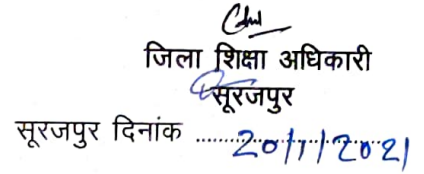 जिला शिक्षा अधिकारी
सूरजपुर
सूरजपुर दिनांक ..........20/1/2021